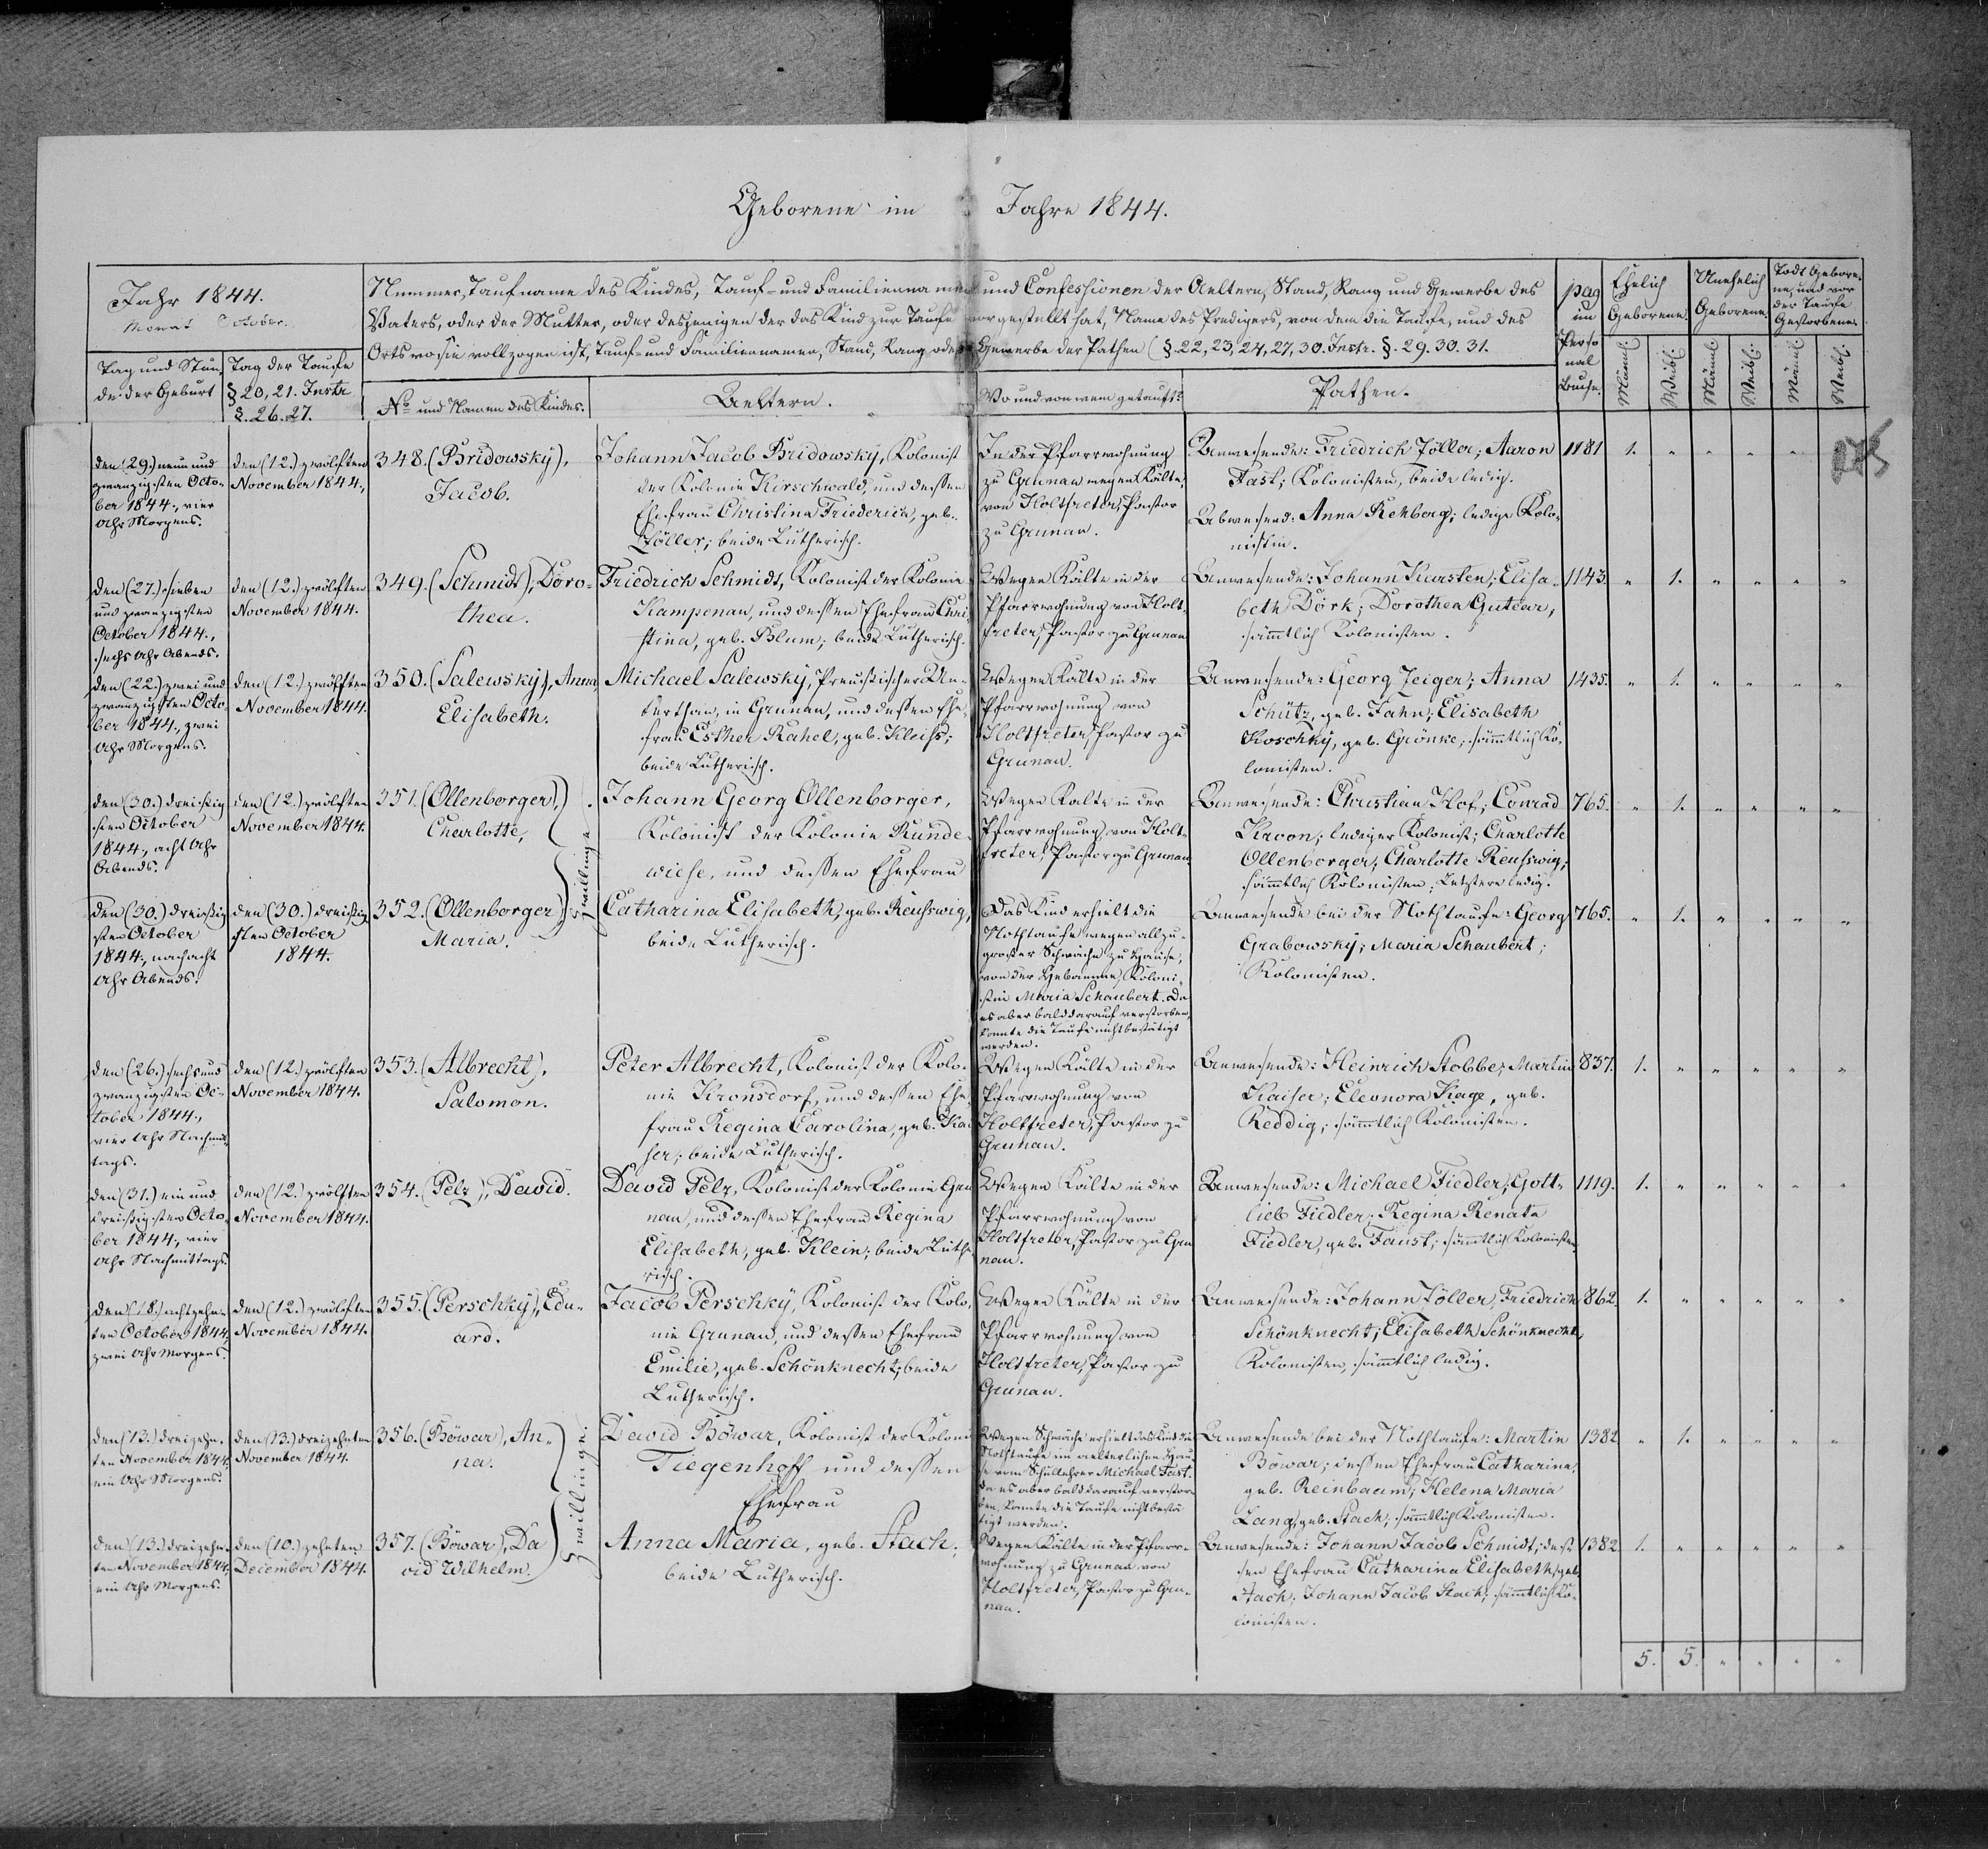 Geborene im Jahre 1844.
Jahr 1844.
Monat October.
Tag und Stun-
de der Geburt
Tag der Taufe
§ 20, 21. Instr
§. 26. 27.
Nummer, Taufname des Kindes, Tauf- und Familiennamen und Confessionen der Aeltern, Stand, Rang und Gewerbe des
Vaters, oder der Mutter, oder desjenigen der das Kind zur Taufe vorgestellt hat, Name des Predigers, von dem die Taufe, und des
Orts wo sie vollzogen ist, Tauf- und Familiennamen, Stand, Rang oder Gewerbe der Pathen (§. 22, 23, 24, 27, 30. Instr. §. 29. 30. 31.
No und Namen des Kindes.
Aeltern.
Wo und von wem getauft?
Pathen.
pag
im
Perso
nal
Buche.
Ehelich
Geborene.
Unehelich
Geborene.
Todt Gebore-
ne, und vor
der Taufe
Gestorbene.
Männl.
Weibl.
Männl.
Weibl.
Männl.
Weibl.
den (29.) neun und
zwanzigsten Octo-
ber 1844., vier
Uhr Morgens.
den (12.) zwölften
November 1844.,
348. (Bridowsky),
Jacob.
Johann Jacob Bridowsky, Kolonist
der Kolonie Kirschwald, und dessen
Ehefrau Christina Friederica, geb.
Zöller; beide Lutherisch.
In der Pfarrwohnung
zu Grunau wegen Kälte,
von Holtfreter, Pastor
zu Grunau.
Anwesende: Friedrich Zöller; Aaron
Fast; Kolonisten, beide ledig.
Abwesend: Anna Rehberg; ledige Kolo-
nistin.
1181 1. " " " " "
den (27.) sieben
und zwanzigsten
October 1844.,
sechs Uhr Abends.
den (12.) zwölften
November 1844.
349. (Schmidt), Doro-
thea.
Friedrich Schmidt, Kolonist der Kolonie
Kampenau, und dessen Ehefrau Chri-
stina, geb. Blum; beide Lutherisch.
Wegen Kälte in der
Pfarrwohnung von Holt-
freter, Pastor zu Grunau
Anwesende: Johann Karsten; Elisa-
beth Dörk; Dorothea Gutear,
sämtlich Kolonisten.
1143. " 1. " " " "
den (22.) zwei und
zwanzigsten Octo-
ber 1844., zwei
Uhr Morgens.
den (12.) zwölften
November 1844.
350. (Salewsky), Anna
Elisabeth.
Michael Salewsky, Preussischer Un-
terthan, in Grunau, und dessen Ehe-
frau Esther Rahel, geb. Kleiss;
beide Lutherisch.
Wegen Kälte in der
Pfarrwohnung von
Holtfreter, Pastor zu
Grunau.
Anwesende: Georg Zeiger; Anna
Schütz, geb. Jahn; Elisabeth
Koschky, geb. Grönke; sämtlich Ko-
lonisten.
1435. " 1. " " " "
den (30.) dreissig-
sten October
1844., acht Uhr
Abends.
den (12.) zwölften
November 1844.
351. (Ollenborger),
Charlotte,
Zwillinge
Johann Georg Ollenborger,
Kolonist der Kolonie Runde-
wiese, und dessen Ehefrau
Wegen Kälte in der
Pfarrwohnung von Holt-
freter, Pastor zu Grunau
Anwesende: Christian Hof; Conrad
Kroon; lediger Kolonist; Charlotte
Ollenborger; Charlotte Reusswig;
sämtlich Kolonisten; Letztere ledig.
765. " 1. " " " "
den (30.) dreissig-
sten October
1844., nach acht
Uhr Abends.
den (30.) dreissig
sten October
1844.
352. (Ollenborger)
Maria.
Catharina Elisabeth, geb. Reusswig,
beide Lutherisch.
Das Kind erhielt die
Nothtaufe wegen allzu-
grosser Schwäche zu Hause,
von der Hebamme Koloni-
stin Maria Schaubert. Da
es aber bald darauf verstorben,
konnte die Taufe nicht bestätigt
werden.
Anwesende bei der Nothtaufe: Georg
Grabowsky; Maria Schaubert;
Kolonisten.
765. " 1. " " " "
den (26.) sechs und
zwanzigsten Oc-
tober 1844.,
vier Uhr Nachmit-
tags.
den (12.) zwölften
November 1844.
353. (Albrecht),
Salomon.
Peter Albrecht, Kolonist der Kolo-
nie Kronsdorf, und dessen Ehe-
frau Regina Carolina, geb. Kai
ser; beide Lutherisch.
Wegen Kälte in der
Pfarrwohnung von
Holtfreter, Pastor zu
Grunau.
Anwesende: Heinrich Stobbe; Martin
Kaiser; Eleonora Kage, geb.
Reddig; sämtlich Kolonisten.
837. 1. " " " " "
den (31.) ein und
dreissigsten Octo-
ber 1844., vier
Uhr Nachmittags.
den (12.) zwölften
November 1844.
354. (Pelz), David.
David Pelz, Kolonist der Kolonie Gru
nau, und dessen Ehefrau Regina
Elisabeth, geb. Klein; beide Luthe-
risch.
Wegen Kälte in der
Pfarrwohnung von
Holtfreter, Pastor zu Gru
nau.
Anwesende: Michael Fiedler; Gott-
lieb Fiedler; Regina Renata
Fiedler, geb. Faust; sämtlich Kolonisten.
1119. 1. " " " " "
den (18.) achtzehn-
ten October 1844,
zwei Uhr Morgens.
den (12.) zwölften
November 1844.
355. (Perschky), Edu-
ard.
Jacob Perschky, Kolonist der Kolo-
nie Grunau, und dessen Ehefrau
Emilie, geb. Schönknecht; beide
Lutherisch.
Wegen Kälte in der
Pfarrwohnung von
Holtfreter, Pastor zu
Grunau.
Anwesende: Johann Zöller, Friedrich
Schönknecht; Elisabeth Schönknecht,
Kolonisten, sämtlich ledig.
862. 1. " " " " "
den (13.) dreizehn-
ten November 1844,
ein Uhr Morgens.
den (13.) dreizehnten
November 1844.
356. (Böwar), An-
na.
Zwillinge.
David Böwar, Kolonist der Koloni
Tiegenhoff und dessen
Ehefrau
Wegen Schwäche erhielt das Kind die
Nothtaufe im aelterlichen Hau-
se vom Schullehrer Michael Fast.
da es aber bald darauf verstor-
ben, konnte die Taufe nicht bestä
tigt werden.
Anwesende bei der Nothtaufe: Martin
Böwar; dessen Ehefrau Catharina,
geb. Reinbaum; Helena Maria
Lang, geb. Stach; sämtlich Kolonisten.
1382 " 1. " " " "
den (13.) dreizehn-
ten November 1844,
ein Uhr Morgens.
den (10.) zehnten
December 1844.
357. (Böwar), Da
vid Wilhelm.
Anna Maria, geb. Stach;
beide Lutherisch.
Wegen Kälte in der Pfarr-
wohnung zu Grunau von
Holtfreter, Pastor zu Gru-
nau.
Anwesende: Johann Jacob Schmidt; des-
sen Ehefrau Catharina Elisabeth, geb.
Stach; Johann Jacob Stach; sämtlich Ko-
lonisten.
1382. 1. " " " " "
5. 5. " " " "